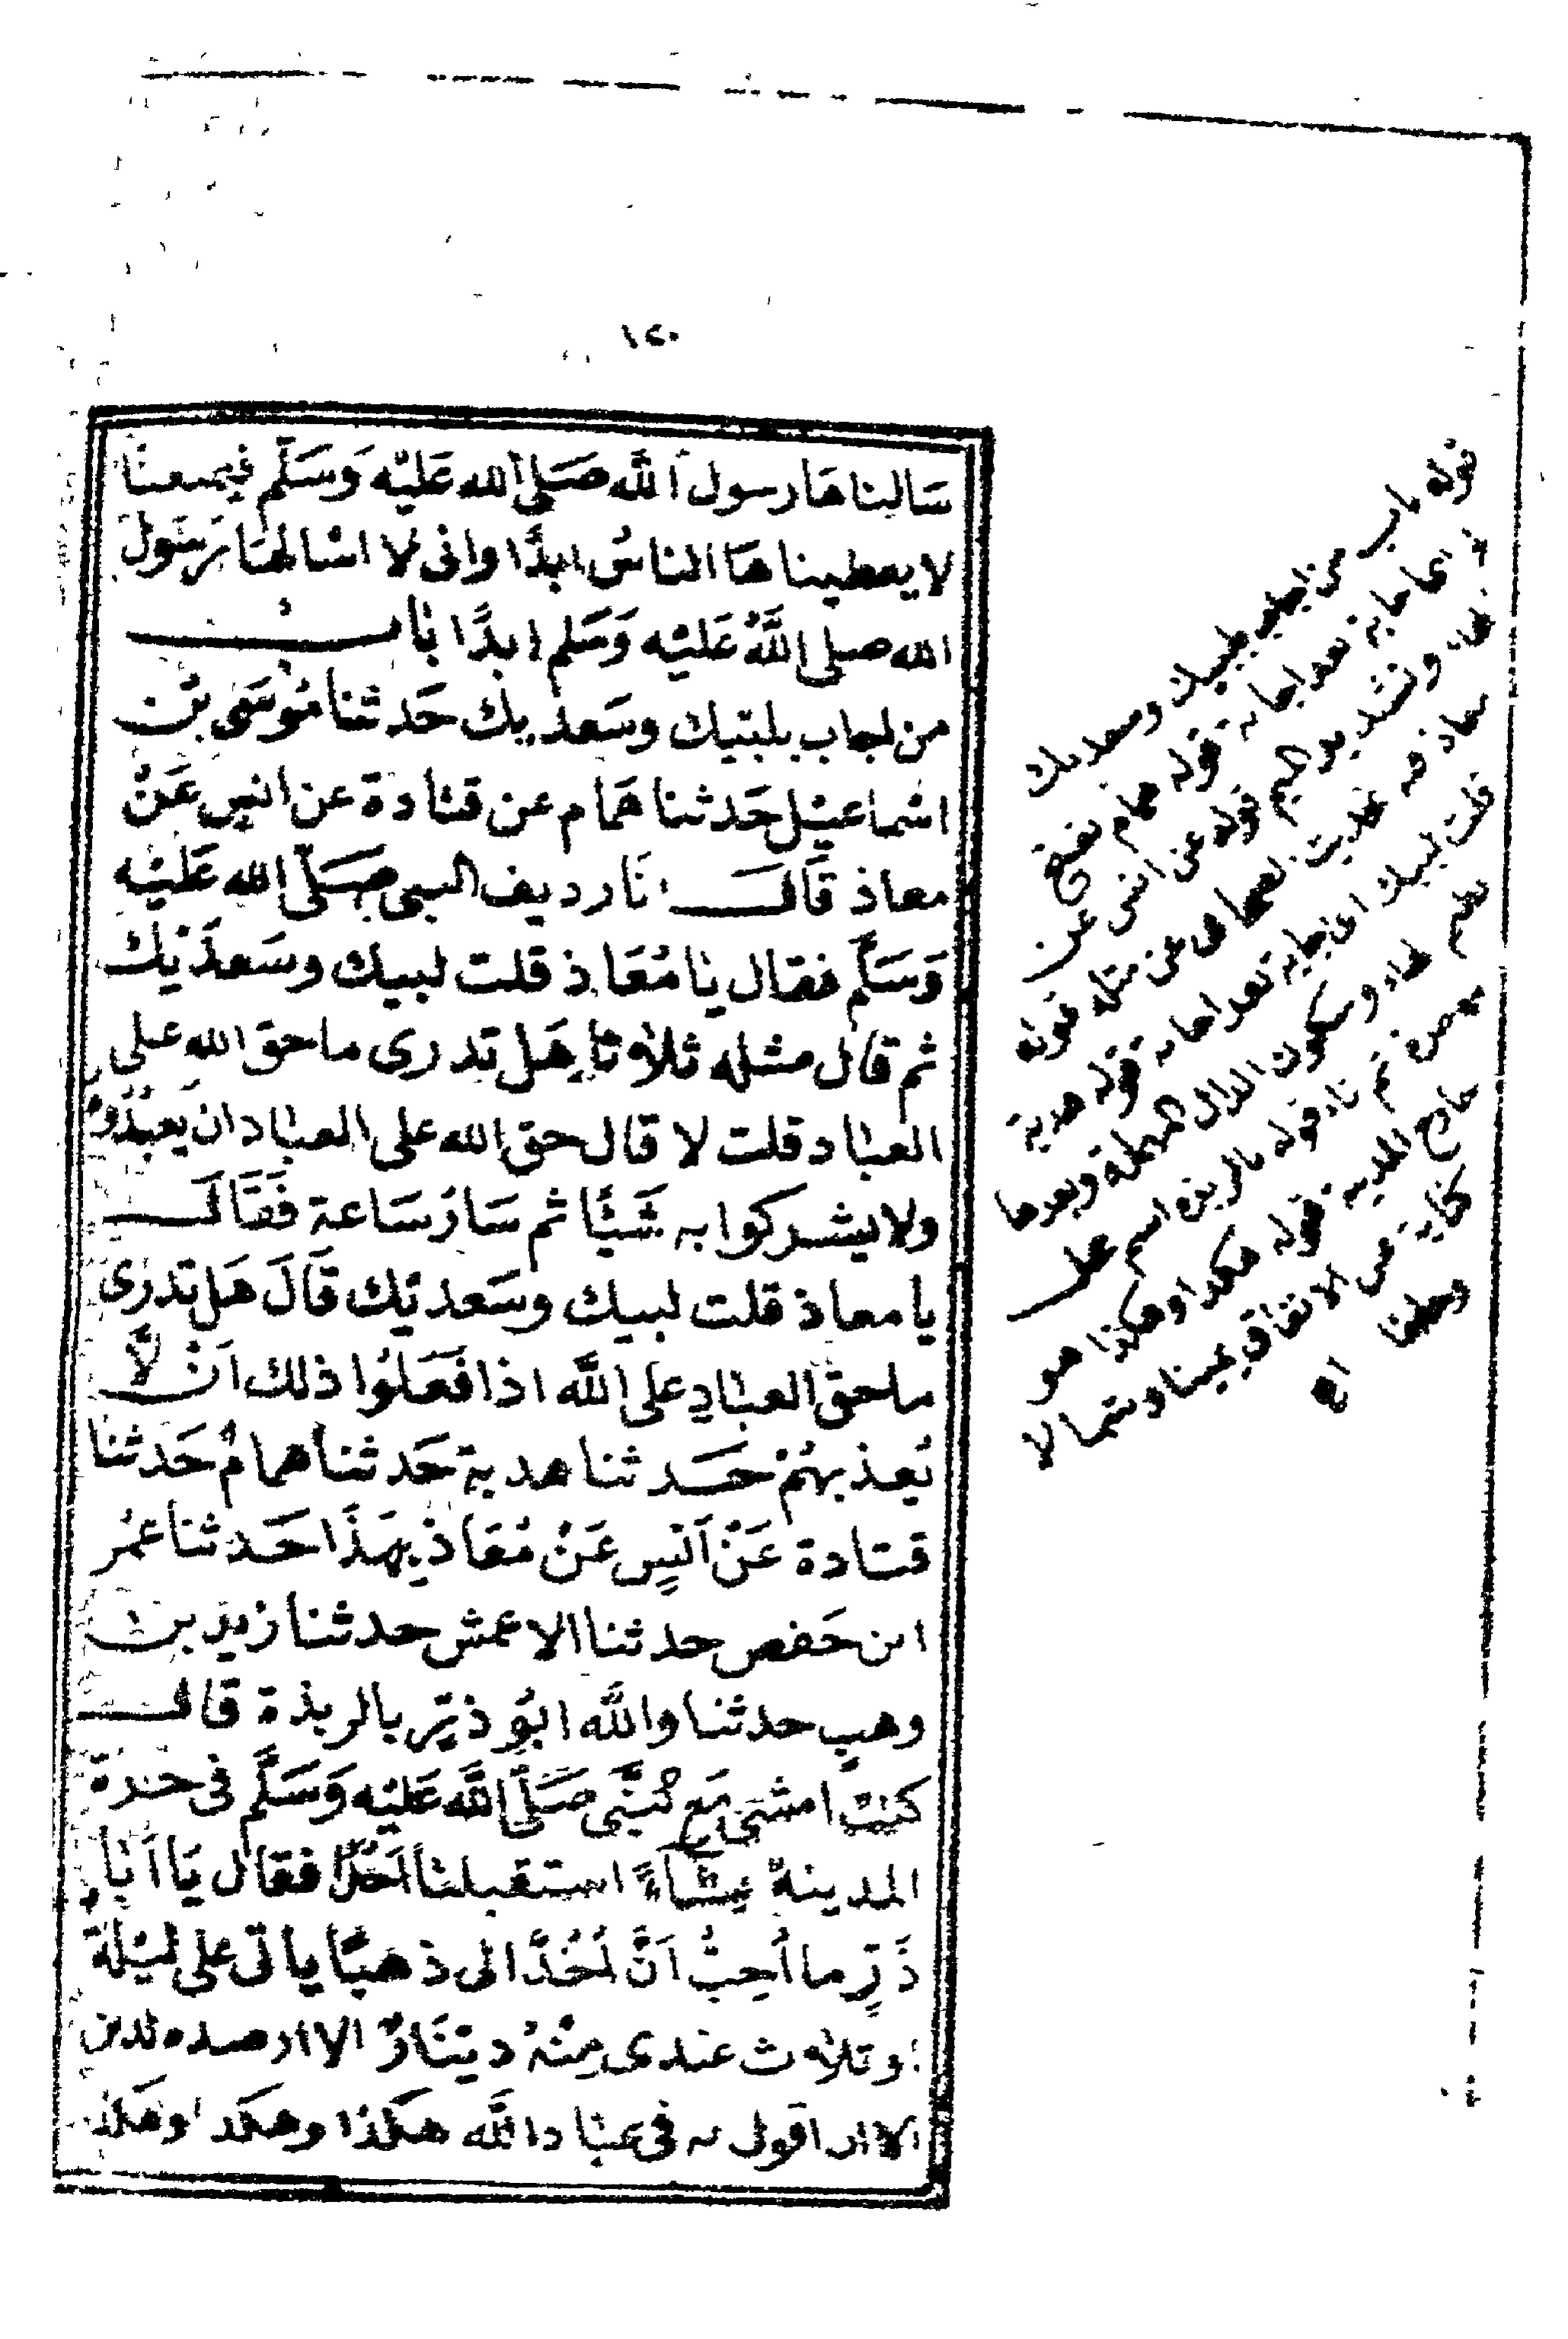 ١٢٠
سَالناهَا رسول اللَّه صَلى الله عَليْه وَسَلَّم فيمنعنَا
لا يعطيناهَا الناسُ ابدًا وانى لا اسْالهَا رَسُولَ
الله صلى اللَّهُ عَليْه وَسَلم ابدًا بَاب
من اجاب بلبّيك وسَعدَيك حَدثنا مُوسَى بْن
اسْماعيْل حَدثنا هَمام عن قتادة عن انسٍ عَنْ
معاذ قَالَ انَا رديف النبى صَلَّى الله عَليْه
وَسَلَّم فقال يَا مُعَاذ قلت لبيك وسَعدَيْك
ثم قال مثله ثلاثا هَل تدرى ما حق الله على
العبَاد قلت لا قال حق الله على العبَاد ان يَعبدُوهُ
ولا يشركوا به شَيْئًا ثم سَارَ سَاعة فَقَالَ
يا معاذ قلت لبيك وسَعديْك قَالَ هَل تدرى
ما حق العبَادِ على اللَّه اذا فَعَلوُا ذلك اَنْ لَّا
يُعذبهُمْ حَدثنا هدبة حَدثنا همامٌ حَدثنا
قتادة عَنْ اَنَسٍ عَنْ مُعَاذٍ بِهَذَا حَدثنا عمُر
ابن حَفص حدثنا الاعمش حدثنا زيد بن
وهبٍ حدثنا واللَّه ابُو ذرٍّ بالربذة قال
كنت امشى مَع النَّبى صَلَّى اللَّه عَليْه وَسَلَّم فى حَرة
المدينة عِشَآءً استقبلنا اُحُدٌ فقال يَا اَبَا
ذَرٍّ ما اُحِبُّ اَنَّ اُحُدًا لى ذهبًا ياتى على ليْلة
او ثلاث عندى مِنْهُ ديْنَارٌ الا ارصده لدين
الا ان اقول به فى عبَاد اللَّه هكذا وهكذا وهكذا
قوله باب من اجاب بلبيك وسعديك
اى اجابة بعد اجابة قوله همام بفتح
الهاء وتشديد الميم قوله عن انس عن
معاذ فيه حديث الصحابى عن مثله قوله
قلت لبيك اى اجابة بعد اجابة قوله هدبة
بضم الهاء وسكون الدال المهملة وبعدها
قوله بالربذة اسم
قوله هكذا وهكذا هو
كناية عن الانفاق يمينا وشمالا
اه